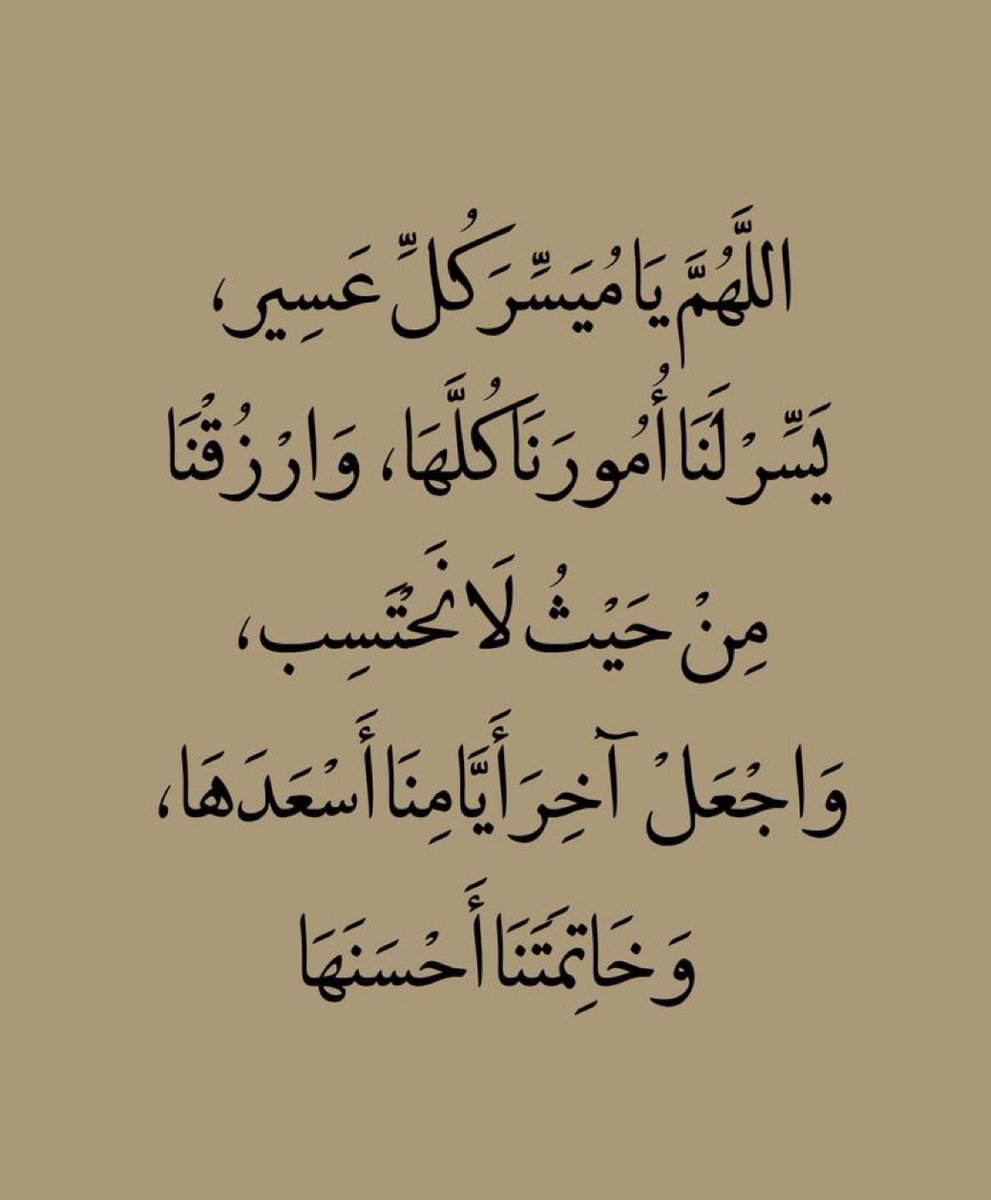 اللَّهُمَّ يَا مُيَسِّرَ كُلِّ عَسِير،
يَسِّرْ لَنَا أُمُورَنَا كُلَّهَا، وَارْزُقْنَا
مِنْ حَيْثُ لَا نَحْتَسِب،
وَاجْعَلْ آخِرَ أَيَّامِنَا أَسْعَدَهَا،
وَخَاتِمَتَنَا أَحْسَنَهَا